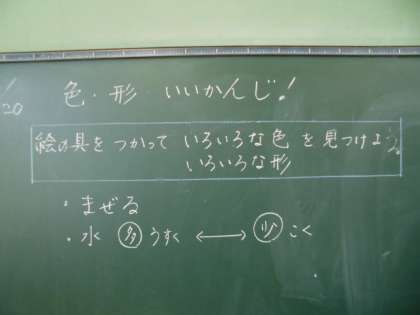 20
色・形 いいかんじ!
絵の具をつかって いろいろな色 を見つけよう。
いろいろな形
・まぜる
・水 多 うすく ⟷ 少 こく